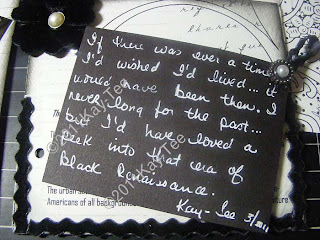 If there was ever a time
I'd wished I'd lived... it
would have been then. I
never long for the past...
but I'd have loved a
peek into that era of
Black Renaissance.
Kay-Tee 3/2011
©2011 Kay-Tee
2011 Kay-Tee
The urban
Americans of all background